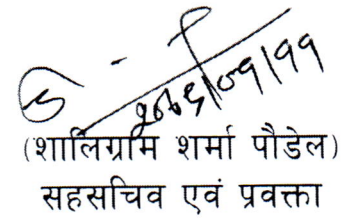 २०८१/०९/११
(शालिग्राम शर्मा पौडेल)
सहसचिव एवं प्रवक्ता